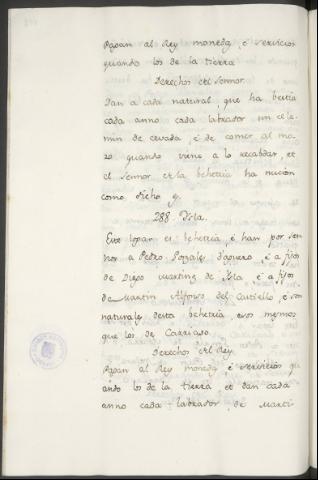 Pagan al Rey moneda, é servicios
quando los de la tierra
Derechos del Sennor.
Dan a cada natural, que ha bestia
cada anno cada labrador un cele-
min de cevada, é de comer al mo-
zo quando viene a lo recabdar, et
el Sennor de la behetria ha nucion
como dicho q.
288. Ysla.
Este logar es behetria, é han por sen-
nor a Pedro Gonzales d'aguero, é a fijos
de Diego Martinez de Ysla é a fijos
de Martin Alfonso del Castiello, é son
naturales desta behetria, esos mesmos
que los de Carriaso.
Derechos del Rey.
Pagan al Rey moneda, é servicios qu-
ando los de la tierra et dan cada
anno cada labrador, de marti-